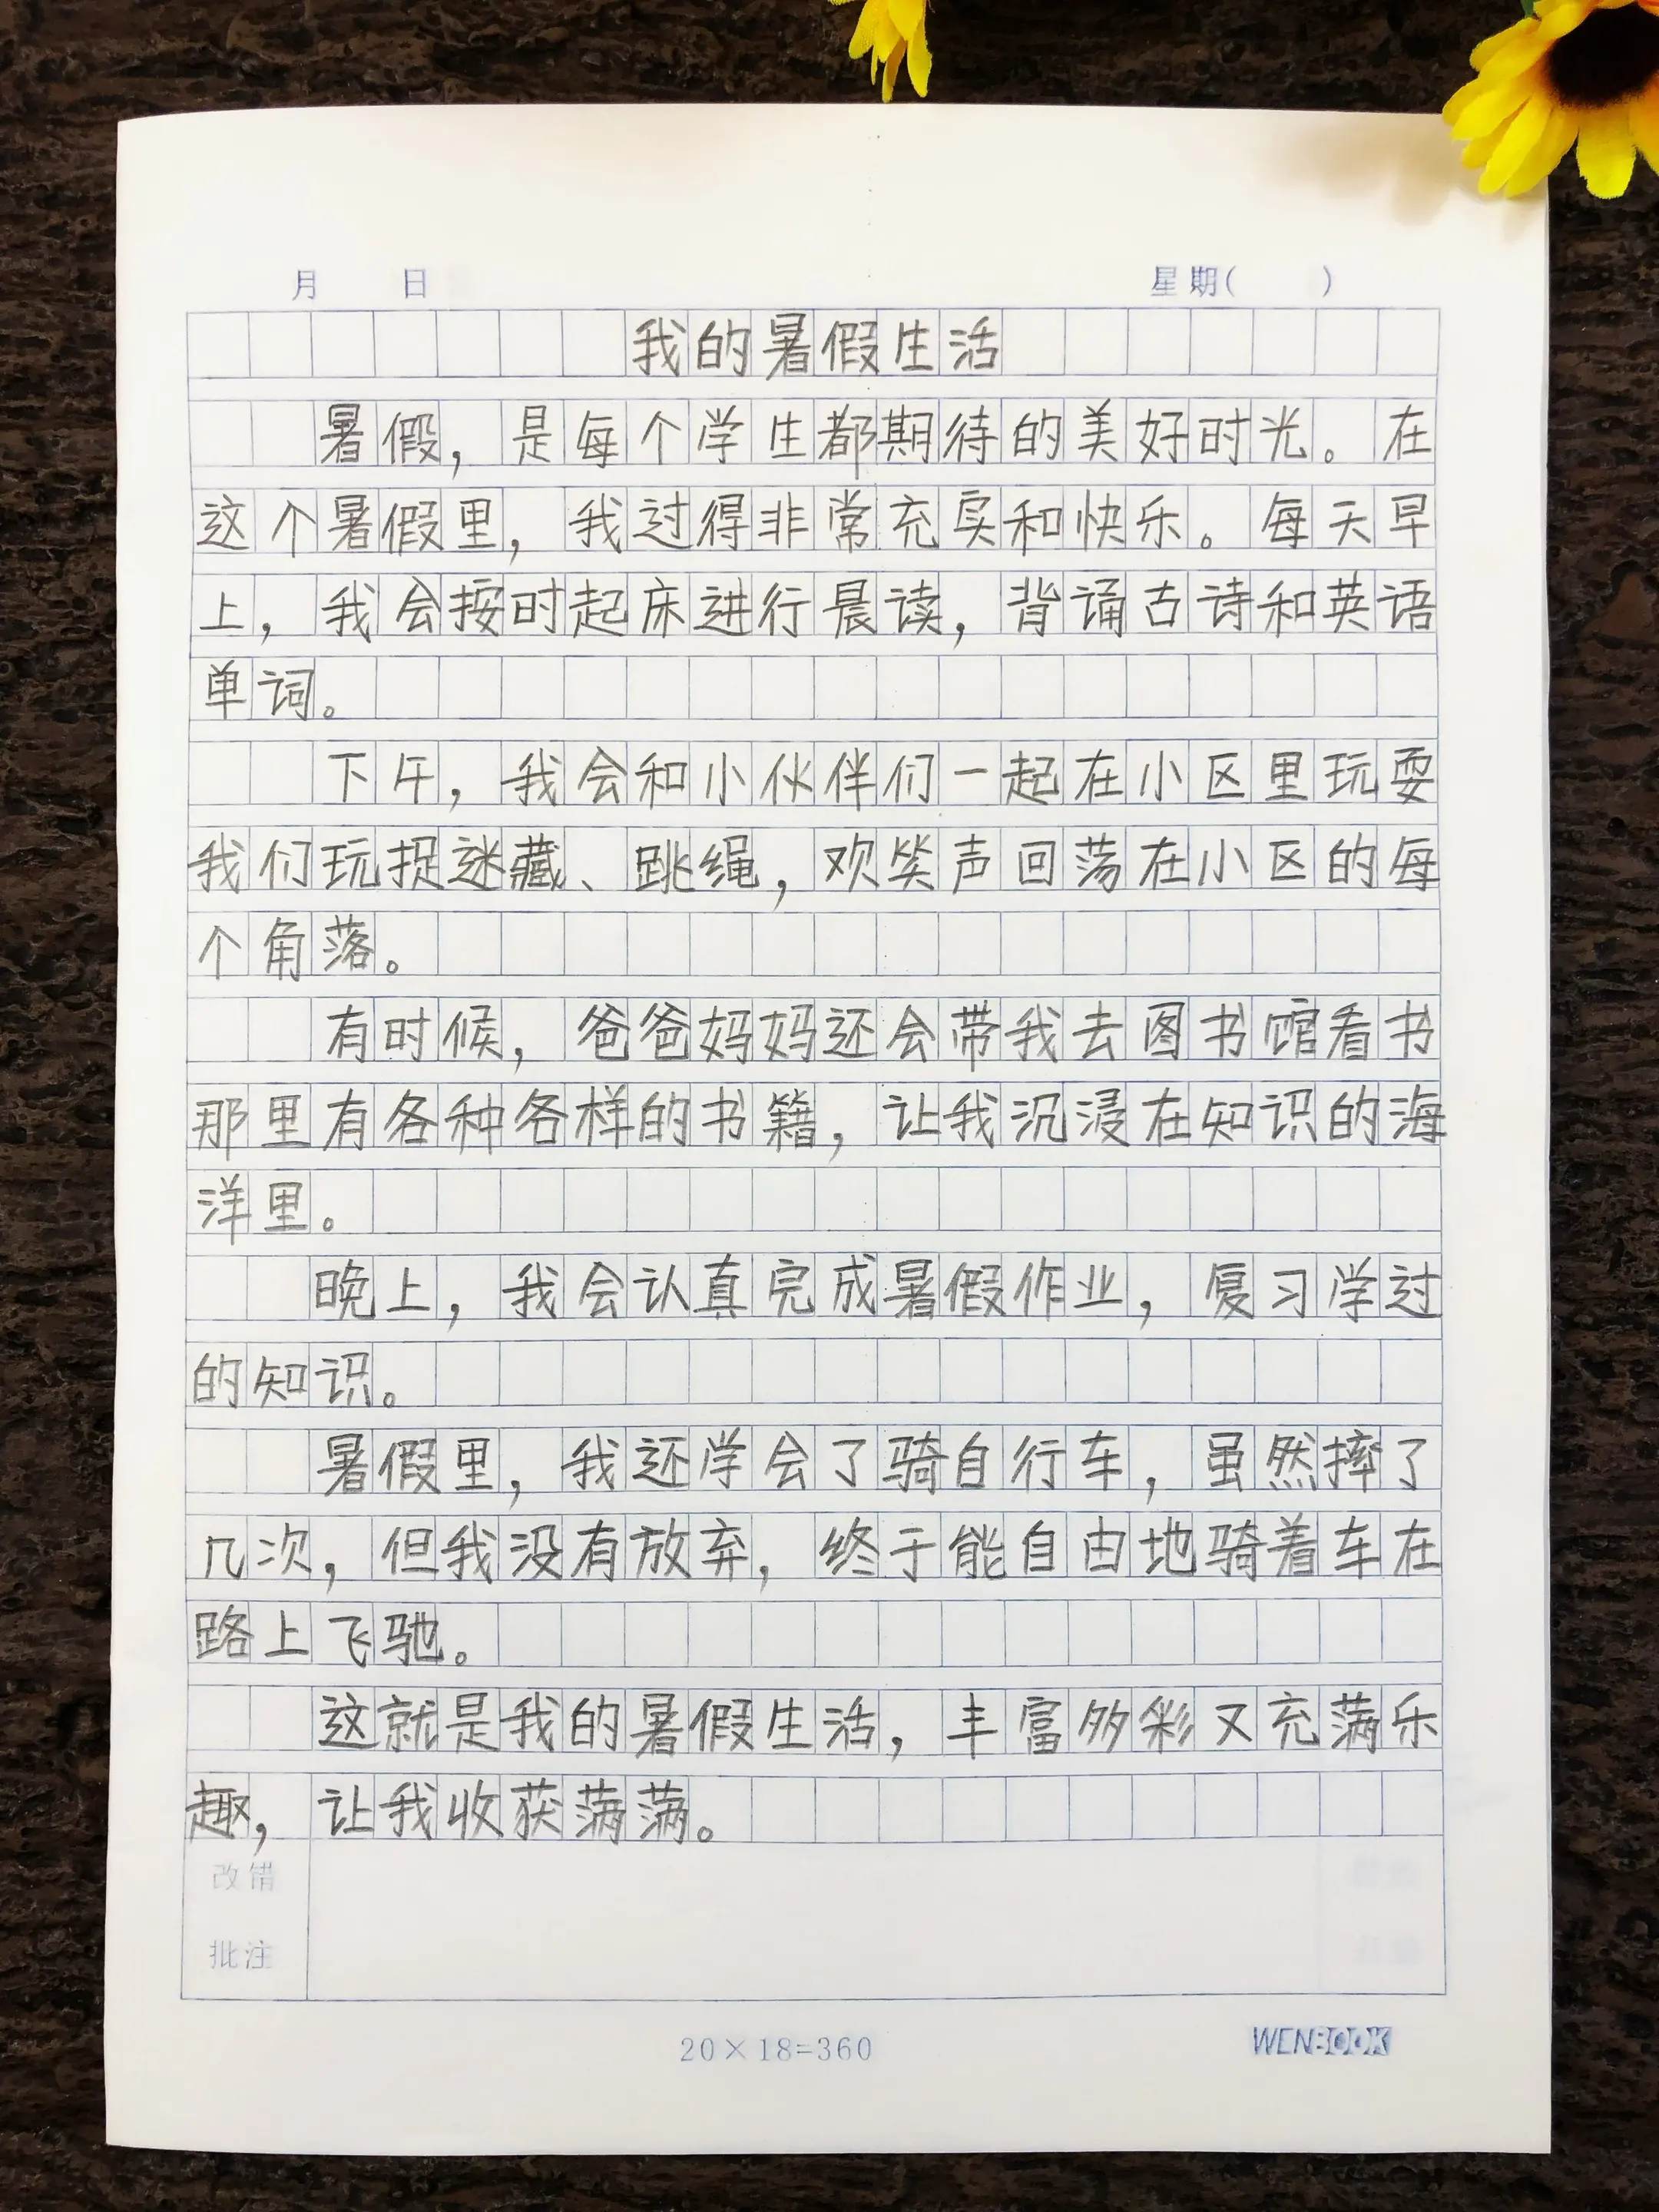 月 日 星期( )
我的暑假生活
暑假，是每个学生都期待的美好时光。在
这个暑假里，我过得非常充实和快乐。每天早
上，我会按时起床进行晨读，背诵古诗和英语
单词。
下午，我会和小伙伴们一起在小区里玩耍
我们玩捉迷藏、跳绳，欢笑声回荡在小区的每
个角落。
有时候，爸爸妈妈还会带我去图书馆看书
那里有各种各样的书籍，让我沉浸在知识的海
洋里。
晚上，我会认真完成暑假作业，复习学过
的知识。
暑假里，我还学会了骑自行车，虽然摔了
几次，但我没有放弃，终于能自由地骑着车在
路上飞驰。
这就是我的暑假生活，丰富多彩又充满乐
趣，让我收获满满。
改错
批注
20×18=360
WENBOOK